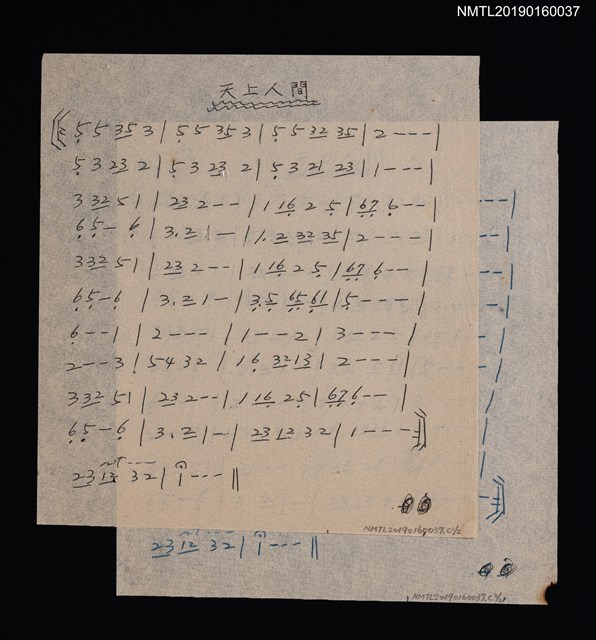 NMTL20190160037
天上人間
5 5 35 3 | 5 5 35 3 | 5 5 32 35 | 2 - - - |
5 3 23 2 | 5 3 23 2 | 5 3 21 23 | 1 - - - |
3 32 5 1 | 23 2 - - | 1 16 2 5 | 67 6 - - |
6 5 - 6 | 3. 2 1 - | 1. 2 32 35 | 2 - - - |
3 32 5 1 | 23 2 - - | 1 16 2 5 | 67 6 - - |
6 5 - 6 | 3. 2 1 - | 3.5 65 61 | 5 - - - |
6 - - 1 | 2 - - - | 1 - - 2 | 3 - - - |
2 - - 3 | 5 4 3 2 | 1 6 32 13 | 2 - - - |
3 32 5 1 | 23 2 - - | 1 16 2 5 | 67 6 - - |
6 5 - 6 | 3. 2 1 - | 23 12 3 2 | 1 - - - ‖
23 12 3 2 | 1 - - - ‖
NMTL20190160037.C1/2
23 12 3 2 | 1 - - - ‖
NMTL20190160037.C2/2